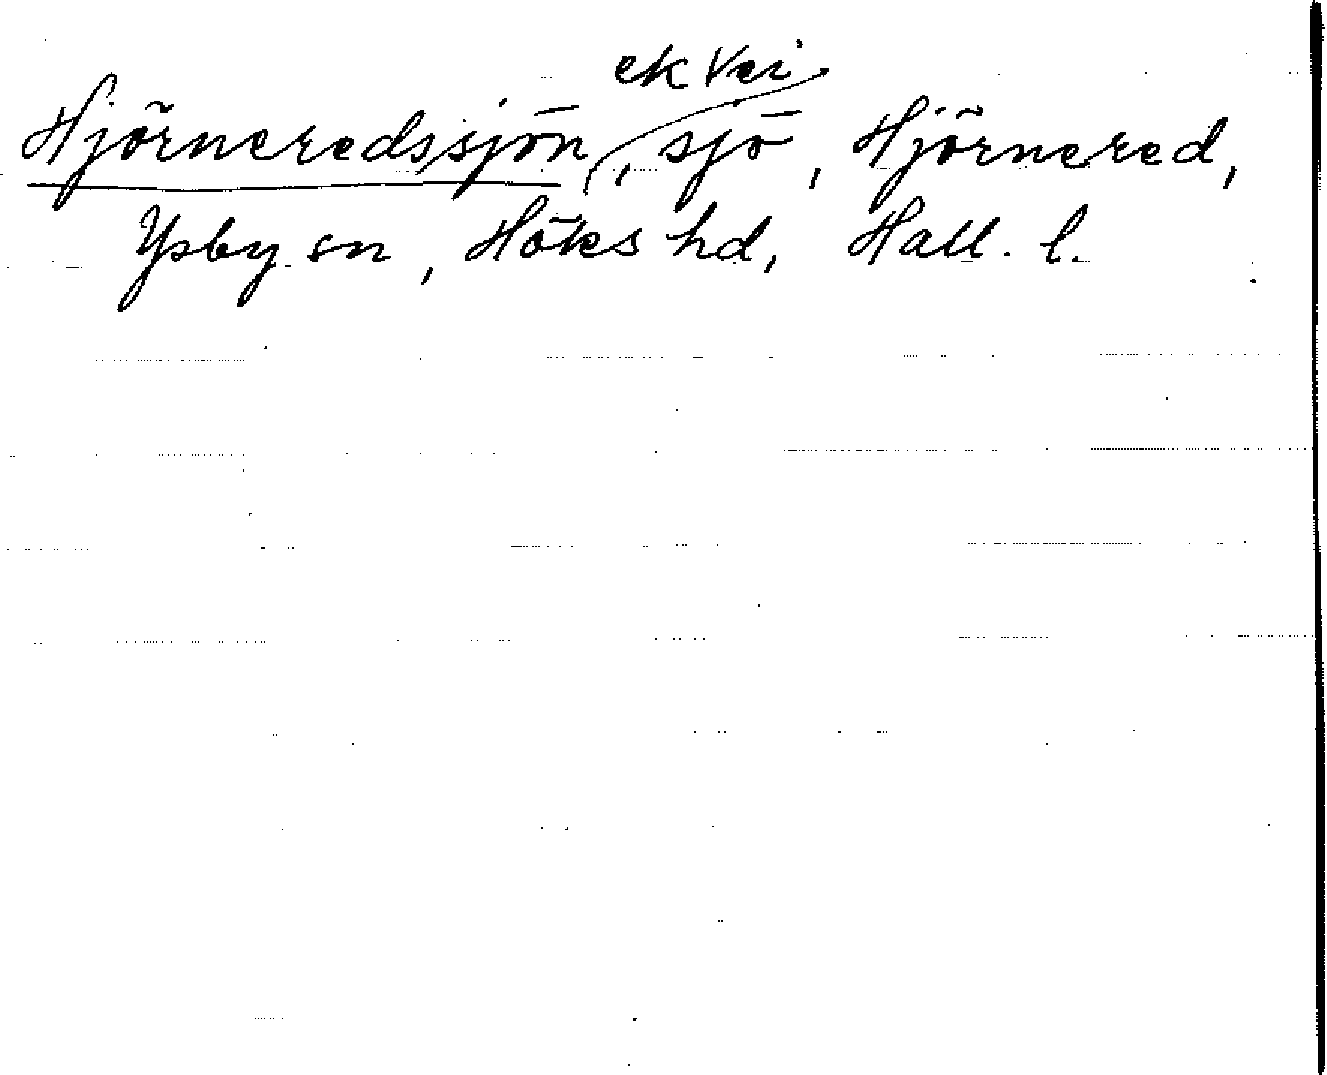 ek Vei
Hjörneredssjön, sjö, Hjörnered,
Ysby sn, Höks hd, Hall. l.